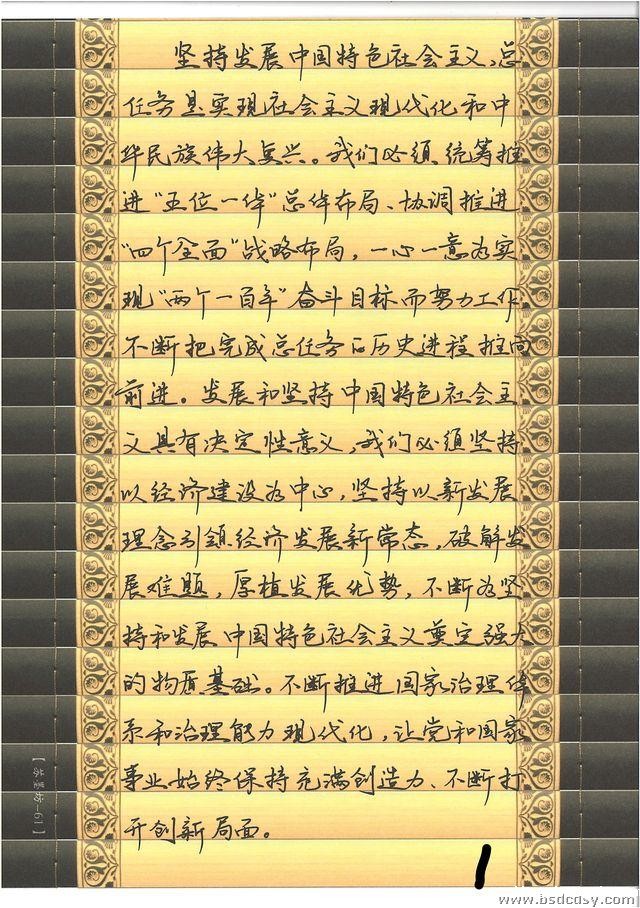 坚持发展中国特色社会主义,总
任务是实现社会主义现代化和中
华民族伟大复兴。我们必须统筹推
进"五位一体"总体布局、协调推进
"四个全面"战略布局,一心一意为实
现"两个一百年"奋斗目标而努力工作
不断把完成总任务的历史进程推向
前进。发展和坚持中国特色社会主
义具有决定性意义,我们必须坚持
以经济建设为中心,坚持以新发展
理念引领经济发展新常态,破解发
展难题,厚植发展优势,不断为坚
持和发展中国特色社会主义奠定强大
的物质基础。不断推进国家治理体
系和治理能力现代化,让党和国家
事业始终保持充满创造力、不断打
开创新局面。
【苏墨坊-61】
1
www.bsdcasy.com